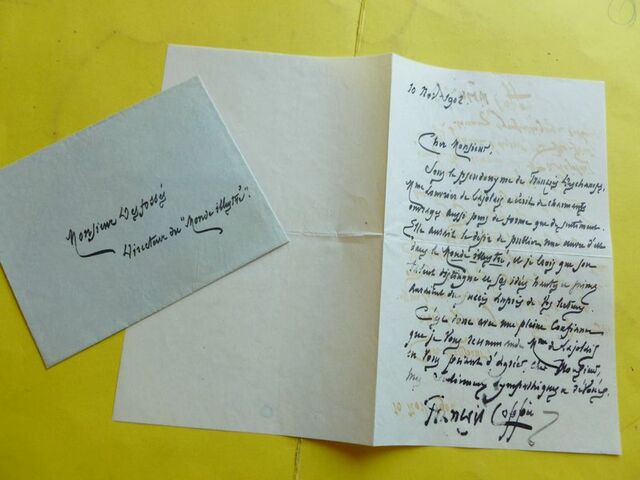 Monsieur Desfossés
Directeur du "Monde illustré".
10 1902
Cher Monsieur,
Sous le pseudonyme de Francis Deschamps,
Mme de Lajolais a écrit de charmants
ouvrages aussi purs de forme que de sentiment.
Elle aurait le désir de publier une œuvre d'elle
dans le Monde illustré, et je crois que son
talent distingué et ses idées
auraient du succès auprès de vos lecteurs.
C'est donc avec une pleine confiance
que je vous recommande Mme de Lajolais
en vous priant d'agréer, cher Monsieur,
mes sympathiques et dévoués.
François Coppée